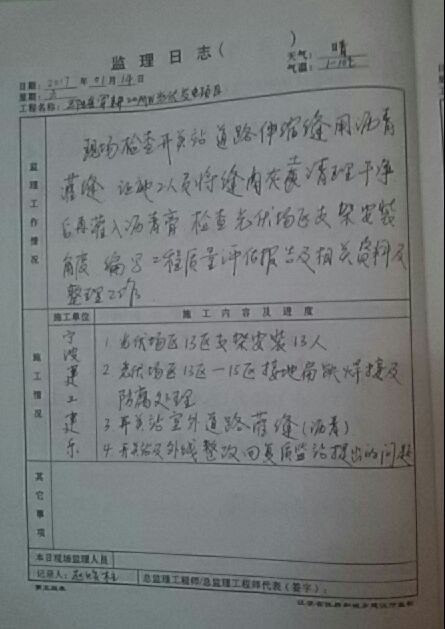 监理日志( )
日期: 2017 年 01 月 14 日
天气: 晴
星期: 六
气温: 1-10℃
工程名称:
监理工作情况
现场检查开关站道路伸缩缝用沥青
灌缝 让施工人员将缝内灰土清理干净
后再灌入沥青膏 检查光伏场区支架安装
角度 编写工程质量评估报告及相关资料及
整理工作
施工单位
施工内容及进度
施工情况
宁波建工建乐
1 光伏场区13区支架安装13人
2 光伏场区13区-15区接地扁铁焊接及
防腐处理
3 开关站室外道路灌缝(沥青)
4 开关站及外线整改回复质监站提出的问题
其它事项
本日现场监理人员
记录人:
总监理工程师/总监理工程师代表(签字):
第五版表
江苏省住房和城乡建设厅监制